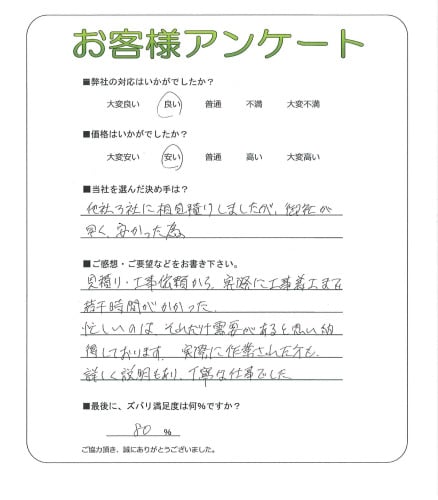 お客様アンケート
■弊社の対応はいかがでしたか？
大変良い 良い 普通 不満 大変不満
■価格はいかがでしたか？
大変安い 安い 普通 高い 大変高い
■当社を選んだ決め手は？
他社3社に相見積りしましたが、御社が
早く、安かった為。
■ご感想・ご要望などをお書き下さい。
見積り・工事依頼から、実際に工事着工まで
若干時間がかかった。
忙しいのは、それだけ需要があると思い納
得しております。実際に作業された方も、
詳しく説明もあり、丁寧な仕事でした。
■最後に、ズバリ満足度は何%ですか？
80 %
ご協力頂き、誠にありがとうございました。